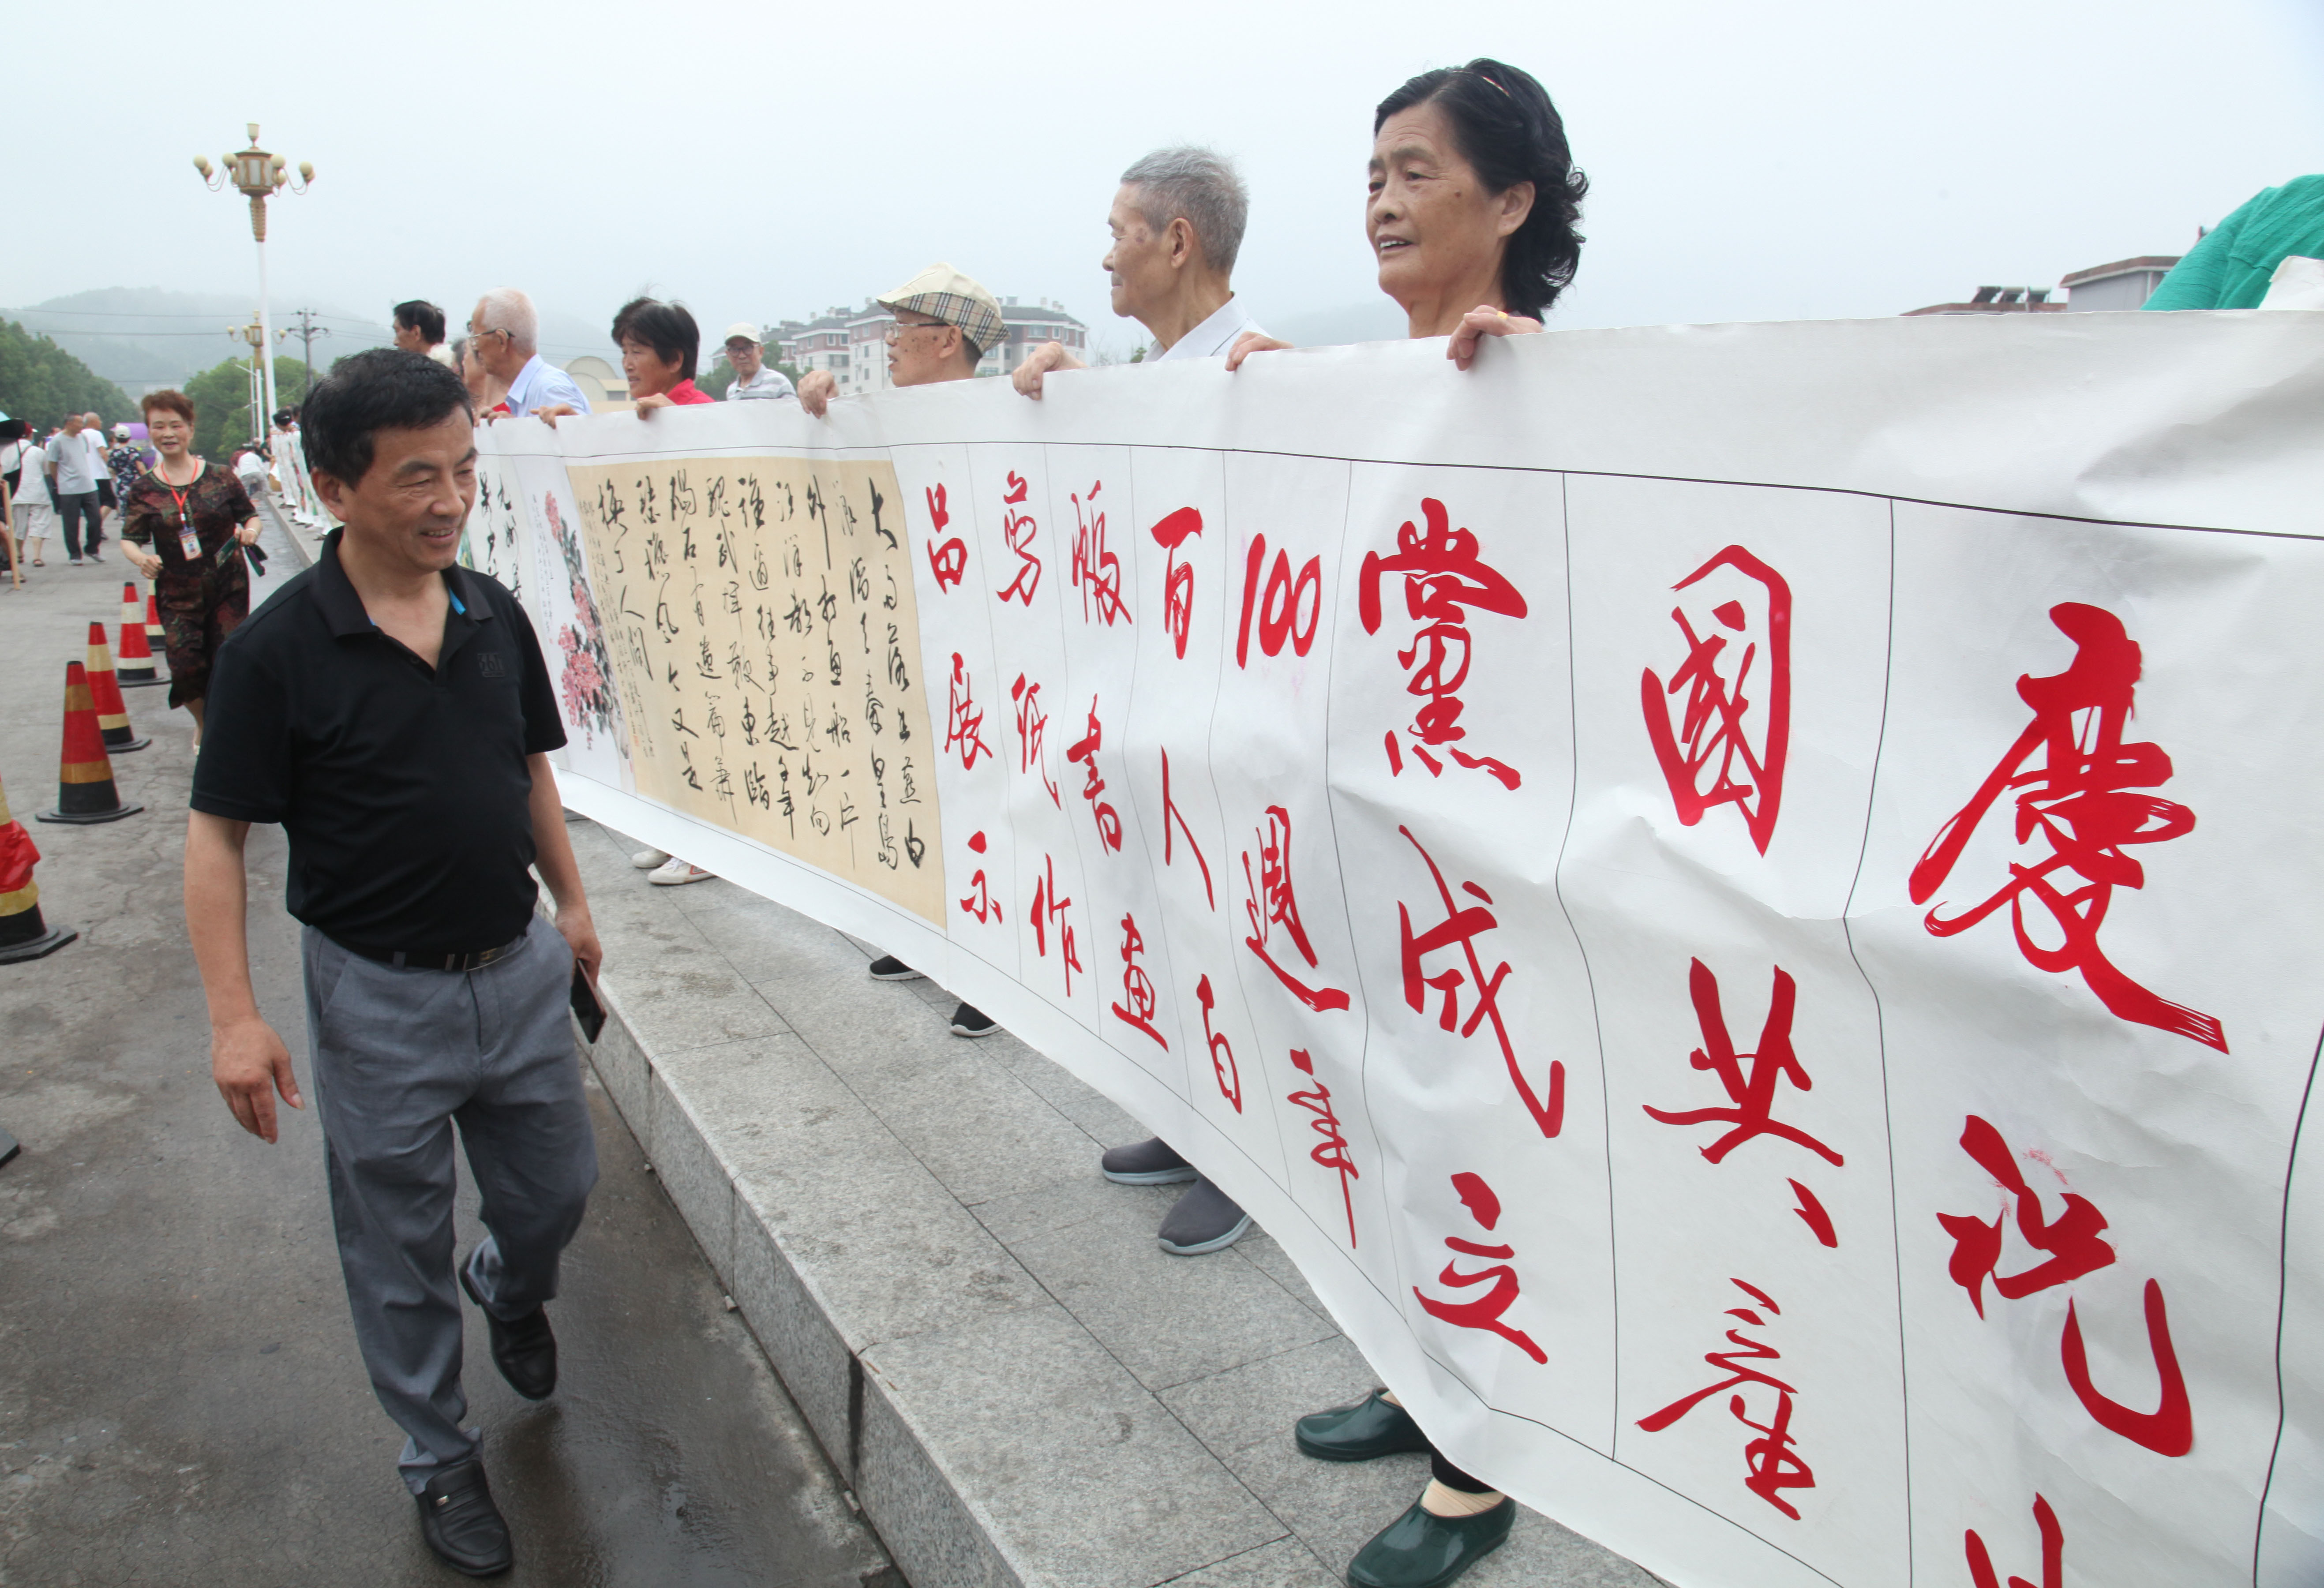 慶祝
國共產
黨成立
100週年
百人百
幅書畫
剪紙作
品展示
大雨落幽燕白
浪滔天秦皇島
外打魚船一片
汪洋都不見知向
誰邊往事越千年
魏武揮鞭東臨
碣石有遺篇蕭
瑟秋風今又是
換了人間